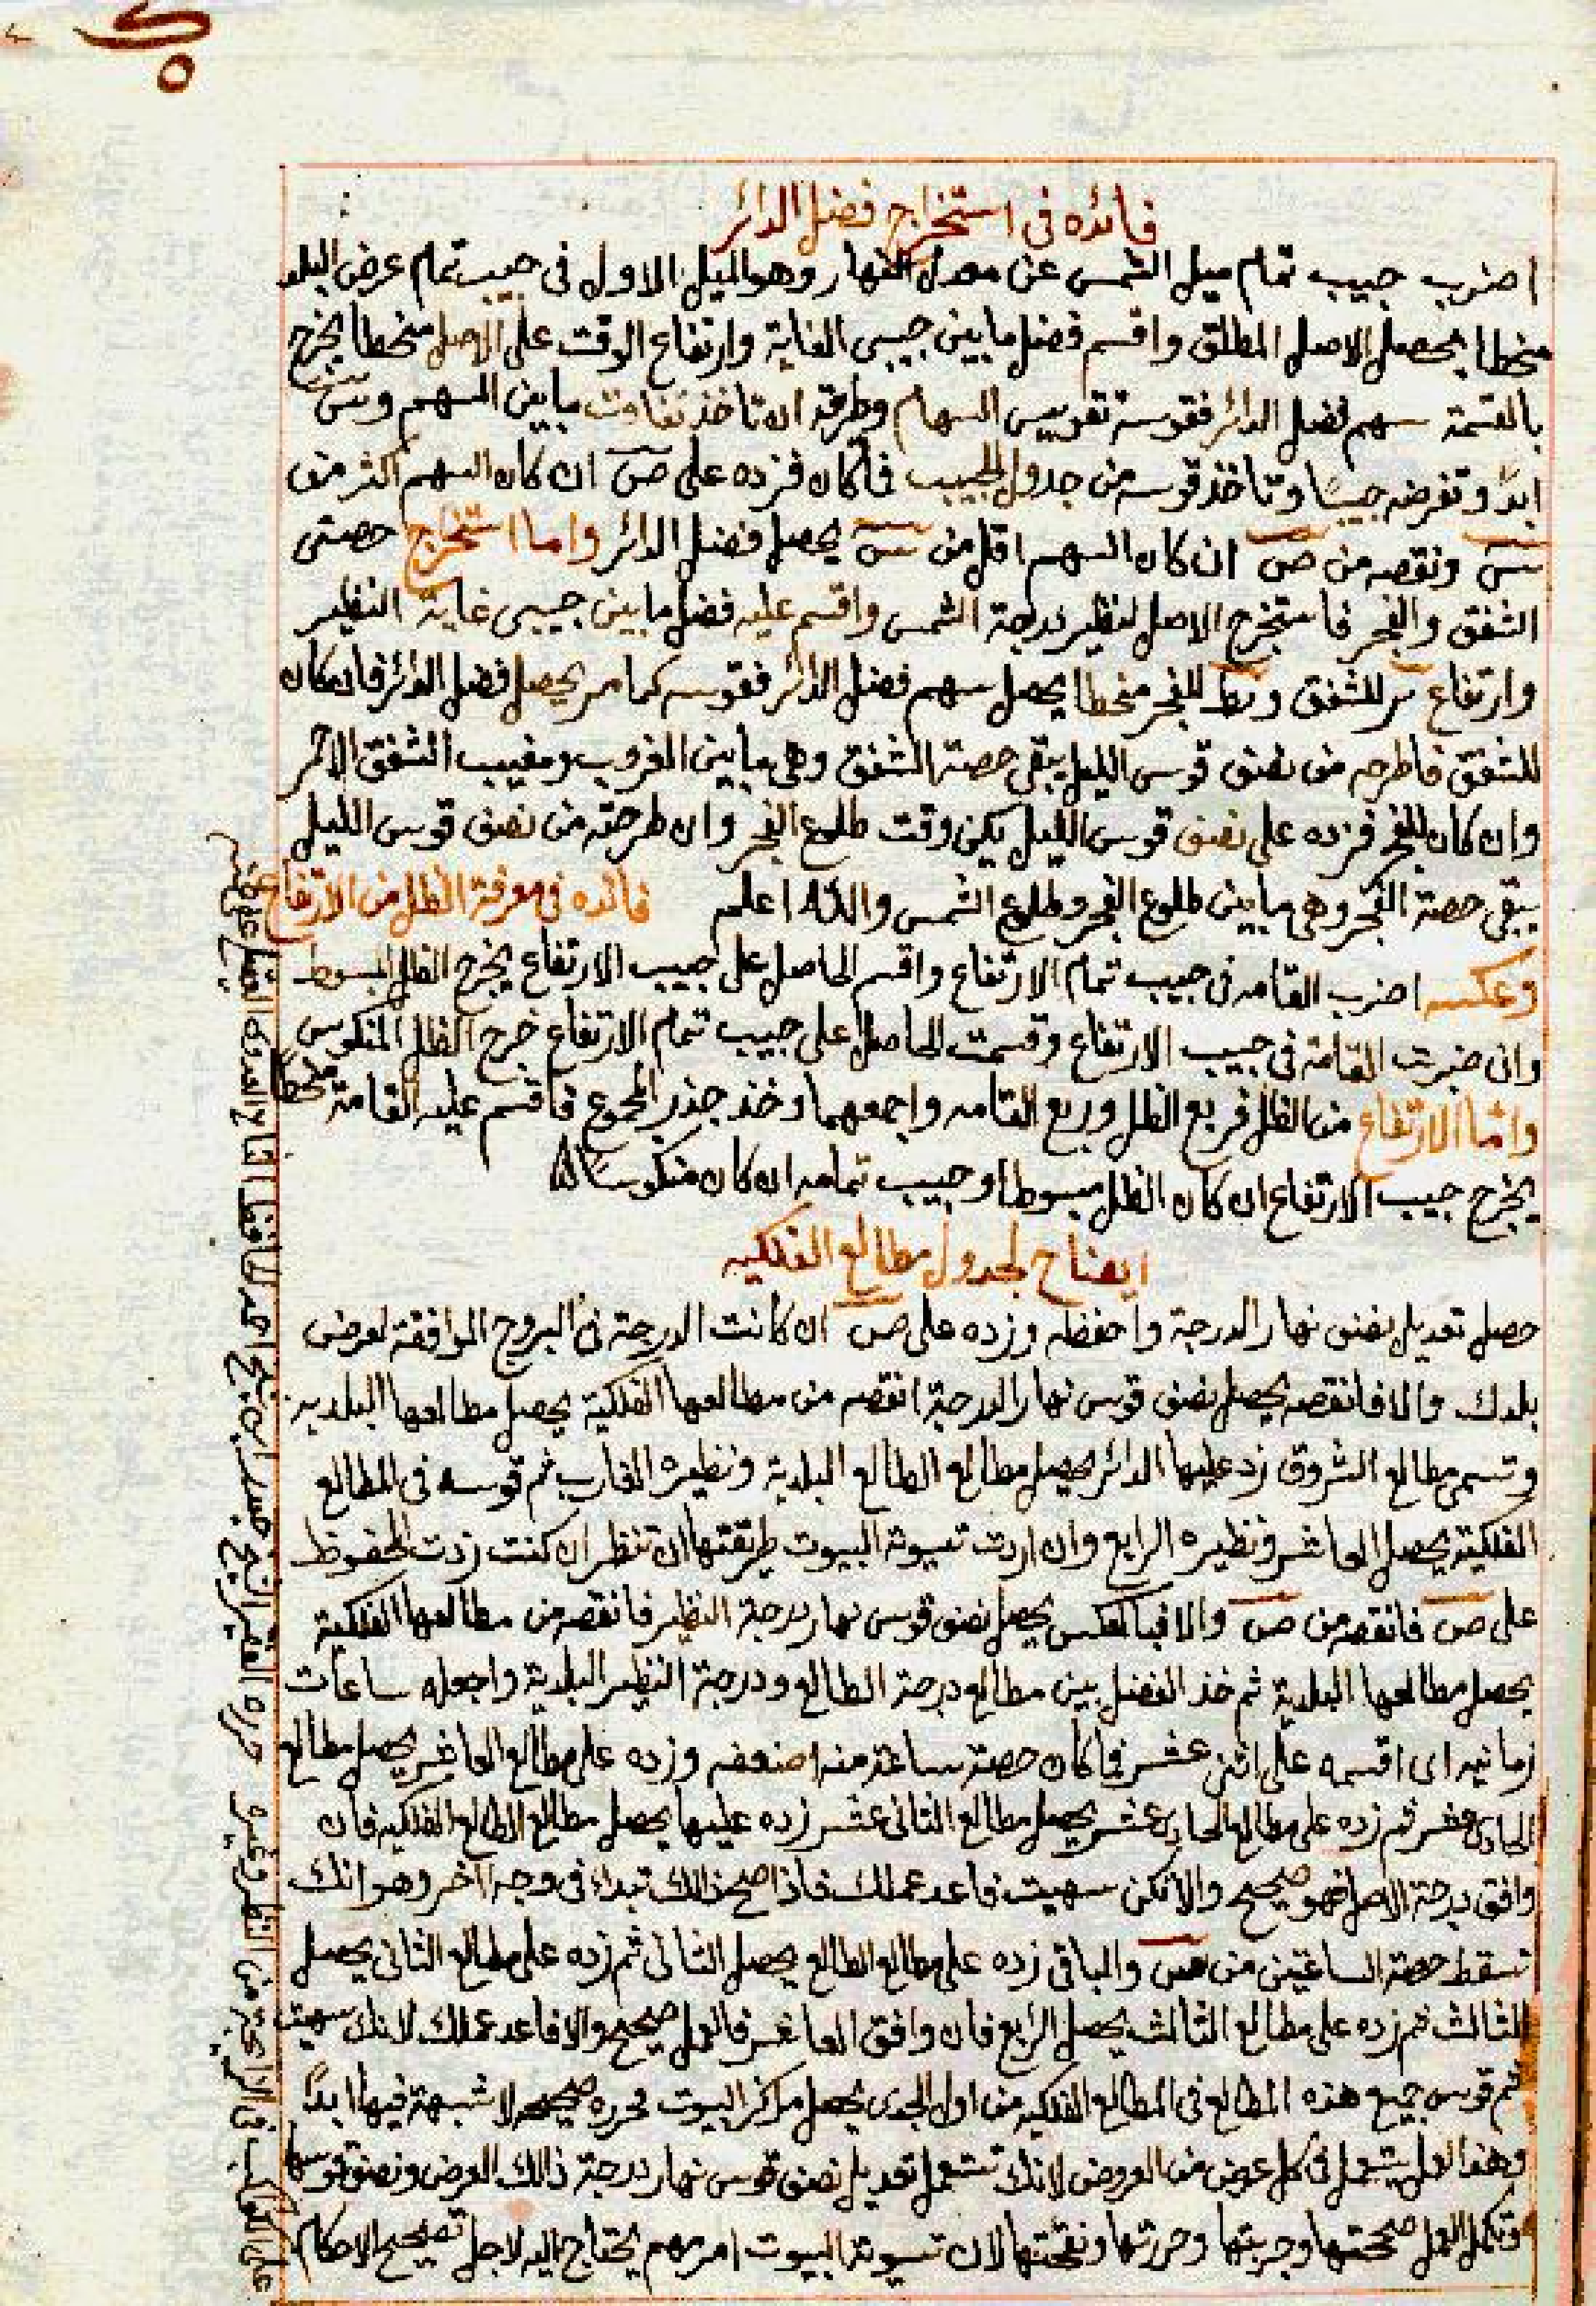 فائده فى استخراج فضل الدائر
اضرب جيب تمام ميل الشمس عن معدل النهار وهو الميل الاول فى جيب تمام عرض البلد
منحطا يحصل الاصل المطلق واقسم فضل ما بين جيبى الغاية وارتفاع الوقت على الاصل منحطا يخرج
بالقسمة سهم فضل الدائر فقوسه تقويس السهام وطريقه ان تاخذ تفاوت ما بين السهم وس
ابدًا وتفرضه جيبًا وتاخذ قوسه من جدول الجيب فما كان فزده على ص ان كان السهم اكثر من
س ونقصه من ص ان كان السهم اقل من س يحصل فضل الدائر واما استخراج حصتى
الشفق والفجر فاستخرج الاصل لنظير درجة الشمس واقسم عليه فضل ما بين جيبى غاية النظير
وارتفاع يز للشفق ويط للفجر منحطا يحصل سهم فضل الدائر فقوسه كما مر يحصل فضل الدائر فان كان
للشفق فاطرحه من نصف قوس الليل يبقى حصة الشفق وهى ما بين الغروب ومغيب الشفق الاحمر
وان كان للفجر فزده على نصف قوس الليل يكن وقت طلوع الفجر وان طرحته من نصف قوس الليل
يبقى حصة الفجر وهى ما بين طلوع الفجر وطلوع الشمس والله اعلم فائده فى معرفة الظل من الارتفاع
وعكسه اضرب القامه فى جيب تمام الارتفاع واقسم الحاصل على جيب الارتفاع يخرج الظل المبسوط
وان ضربت القامة فى جيب الارتفاع وقسمت الحاصل على جيب تمام الارتفاع خرج الظل المنكوس
واما الارتفاع من الظل فربع الظل وربع القامه واجمعهما وخذ جذر المجموع فاقسم عليه القامة منحطا
يخرج جيب الارتفاع ان كان الظل مبسوطا او جيب تمامه ان كان منكوسًا
ايضاح لجدول مطالع الفلكيه
حصل تعديل نصف نهار الدرجة واحفظه وزده على ص ان كانت الدرجة فى البروج الموافقة لعرض
بلدك والا فانقصه يحصل نصف قوس نهار الدرجة انقصه من مطالعها الفلكية يحصل مطالعها البلديه
وتسمى مطالع الشروق زد عليها الدائر يحصل مطالع الطالع البلدية ونظيره الغارب ثم قوسه فى المطالع
الفلكية يحصل العاشر ونظيره الرابع وان اردت تسوية البيوت طريقتها ان تنظر ان كنت زدت المحفوظ
على ص فانقصه من ص والا فبالعكس يحصل نصف قوس نهار درجة النظير فانقصه من مطالعها الفلكية
يحصل مطالعها البلدية ثم خذ الفضل بين مطالع درجة الطالع ودرجة النظير البلدية واجعله ساعات
زمانيه اى اقسمه على اثنى عشر فما كان حصة ساعة منه اضعفه وزده على مطالع العاشر يحصل مطالع
الحادى عشر ثم زده على مطالع الحادى عشر يحصل مطالع الثانى عشر زده عليها يحصل مطالع الطالع الفلكيه فان
وافق درجة الاصل فهو صحيح والا تكن سهيت فاعد عملك فاذا صح ذالك تبداء فى وجه اخر وهو انك
تسقط حصة الساعتين من س والباقى زده على مطالع الطالع يحصل الثانى ثم زده على مطالع الثانى يحصل
الثالث ثم زده على مطالع الثالث يحصل الرابع فان وافق العاشر فالعمل صحيح والا فاعد عملك لانك سهيت
ثم قوس جميع هذه المطالع فى المطالع الفلكيه من اول الجدى يحصل مراكز البيوت محرره صحيحه لا شبهة فيها ابدًا
وهذا العمل يشمل فى كل عرض من العروض لانك تستعمل تعديل نصف قوس نهار درجة ذالك العرض ونصف قوسها
وتكمل العمل صححتها وجربتها وحررتها ونقحتها لان تسوية البيوت امر مهم يحتاج اليه لاجل تصحيح الاحكام